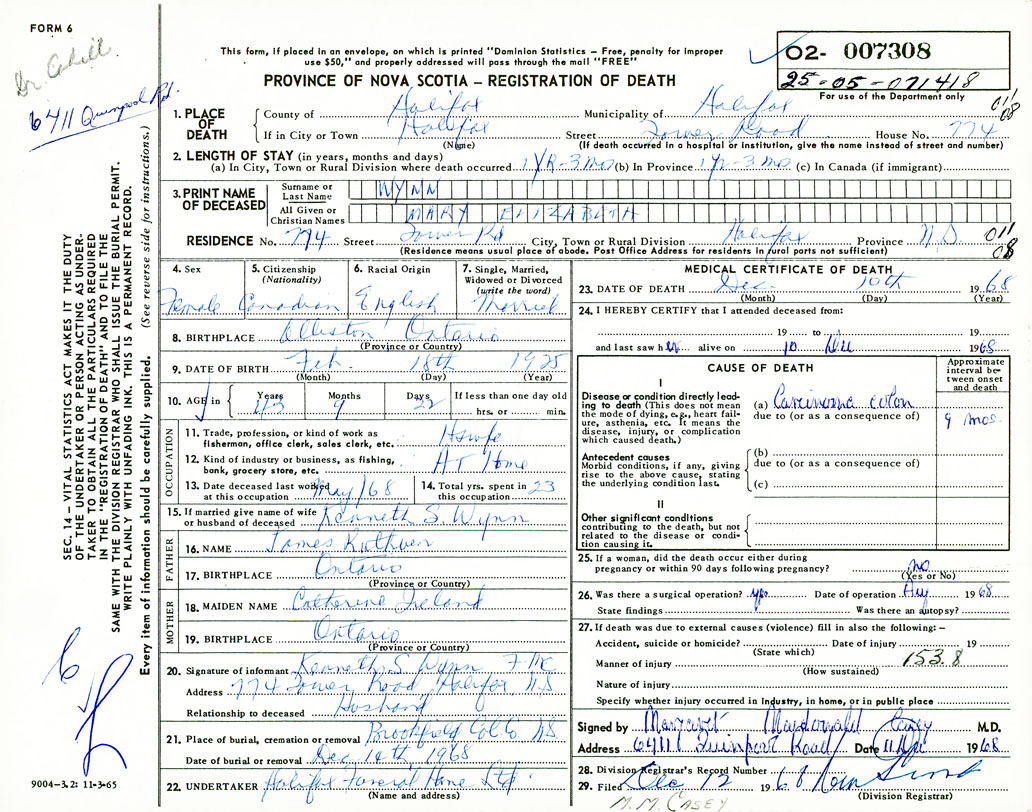 FORM 6
Dr. Cahill.
6411 Quinpool Rd.
This form, if placed in an envelope, on which is printed "Dominion Statistics – Free, penalty for improper
use $50," and properly addressed will pass through the mail "FREE"
PROVINCE OF NOVA SCOTIA – REGISTRATION OF DEATH
02- 007308
25-05-071418
For use of the Department only
011
08
1. PLACE OF DEATH
County of Halifax Municipality of Halifax
If in City or Town Halifax Street Tower Road House No. 774
(Name) (If death occurred in a hospital or institution, give the name instead of street and number)
2. LENGTH OF STAY (in years, months and days)
(a) In City, Town or Rural Division where death occurred 1 YR-3 mo (b) In Province 1 yr-3 mo (c) In Canada (if immigrant)
3. PRINT NAME OF DECEASED
Surname or Last Name WYNN
All Given or Christian Names MARY ELIZABETH
RESIDENCE No. 774 Street Tower Rd City, Town or Rural Division Halifax Province N.S. 011
08
(Residence means usual place of abode. Post Office Address for residents in rural parts not sufficient)
4. Sex Female
5. Citizenship (Nationality) Canadian
6. Racial Origin English
7. Single, Married, Widowed or Divorced (write the word) Married
8. BIRTHPLACE Alliston Ontario
(Province or Country)
9. DATE OF BIRTH Feb. 18th 1925
(Month) (Day) (Year)
10. AGE in Years 43 Months 9 Days 22 If less than one day old hrs. or min.
OCCUPATION
11. Trade, profession, or kind of work as fisherman, office clerk, sales clerk, etc. Hswfe
12. Kind of industry or business, as fishing, bank, grocery store, etc. AT Home
13. Date deceased last worked at this occupation May/68
14. Total yrs. spent in this occupation 23
15. If married give name of wife or husband of deceased Kenneth S. Wynn
FATHER
16. NAME James Ruthven
17. BIRTHPLACE Ontario
(Province or Country)
MOTHER
18. MAIDEN NAME Catherine Ireland
19. BIRTHPLACE Ontario
(Province or Country)
20. Signature of informant Kenneth S. Wynn
Address 774 Tower Road Halifax NS
Relationship to deceased Husband
21. Place of burial, cremation or removal Brookfield Col Co. NS
Date of burial or removal Dec. 14th 1968
22. UNDERTAKER Halifax Funeral Home Ltd.
(Name and address)
MEDICAL CERTIFICATE OF DEATH
23. DATE OF DEATH Dec. 10th 1968
(Month) (Day) (Year)
24. I HEREBY CERTIFY that I attended deceased from:
19 to 19
and last saw her alive on 10 Dec 1968
CAUSE OF DEATH
Approximate interval between onset and death
I
Disease or condition directly leading to death (This does not mean the mode of dying, e.g., heart failure, asthenia, etc. It means the disease, injury, or complication which caused death.)
(a) Carcinoma colon 9 mos.
due to (or as a consequence of)
Antecedent causes
Morbid conditions, if any, giving rise to the above cause, stating the underlying condition last.
(b)
due to (or as a consequence of)
(c)
II
Other significant conditions
contributing to the death, but not related to the disease or condition causing it.
25. If a woman, did the death occur either during pregnancy or within 90 days following pregnancy? no
(Yes or No)
26. Was there a surgical operation? yes Date of operation Aug 1968
State findings Was there an autopsy?
27. If death was due to external causes (violence) fill in also the following: –
Accident, suicide or homicide? Date of injury 19
(State which)
Manner of injury 153.8
(How sustained)
Nature of injury
Specify whether injury occurred in Industry, in home, or in public place
Signed by Margaret Macdonald Casey M.D.
Address 6411 Quinpool Road Date 11 Dec 1968
28. Division Registrar's Record Number
29. Filed Dec 12 1968
(Division Registrar)
M.M. CASEY
SEC. 14 – VITAL STATISTICS ACT MAKES IT THE DUTY
OF THE UNDERTAKER OR PERSON ACTING AS UNDER-
TAKER TO OBTAIN ALL THE PARTICULARS REQUIRED
IN THE "REGISTRATION OF DEATH" AND TO FILE THE
SAME WITH THE DIVISION REGISTRAR WHO SHALL ISSUE THE BURIAL PERMIT.
WRITE PLAINLY WITH UNFADING INK. THIS IS A PERMANENT RECORD.
Every item of information should be carefully supplied. (See reverse side for instructions.)
9004-3.2: 11-3-65